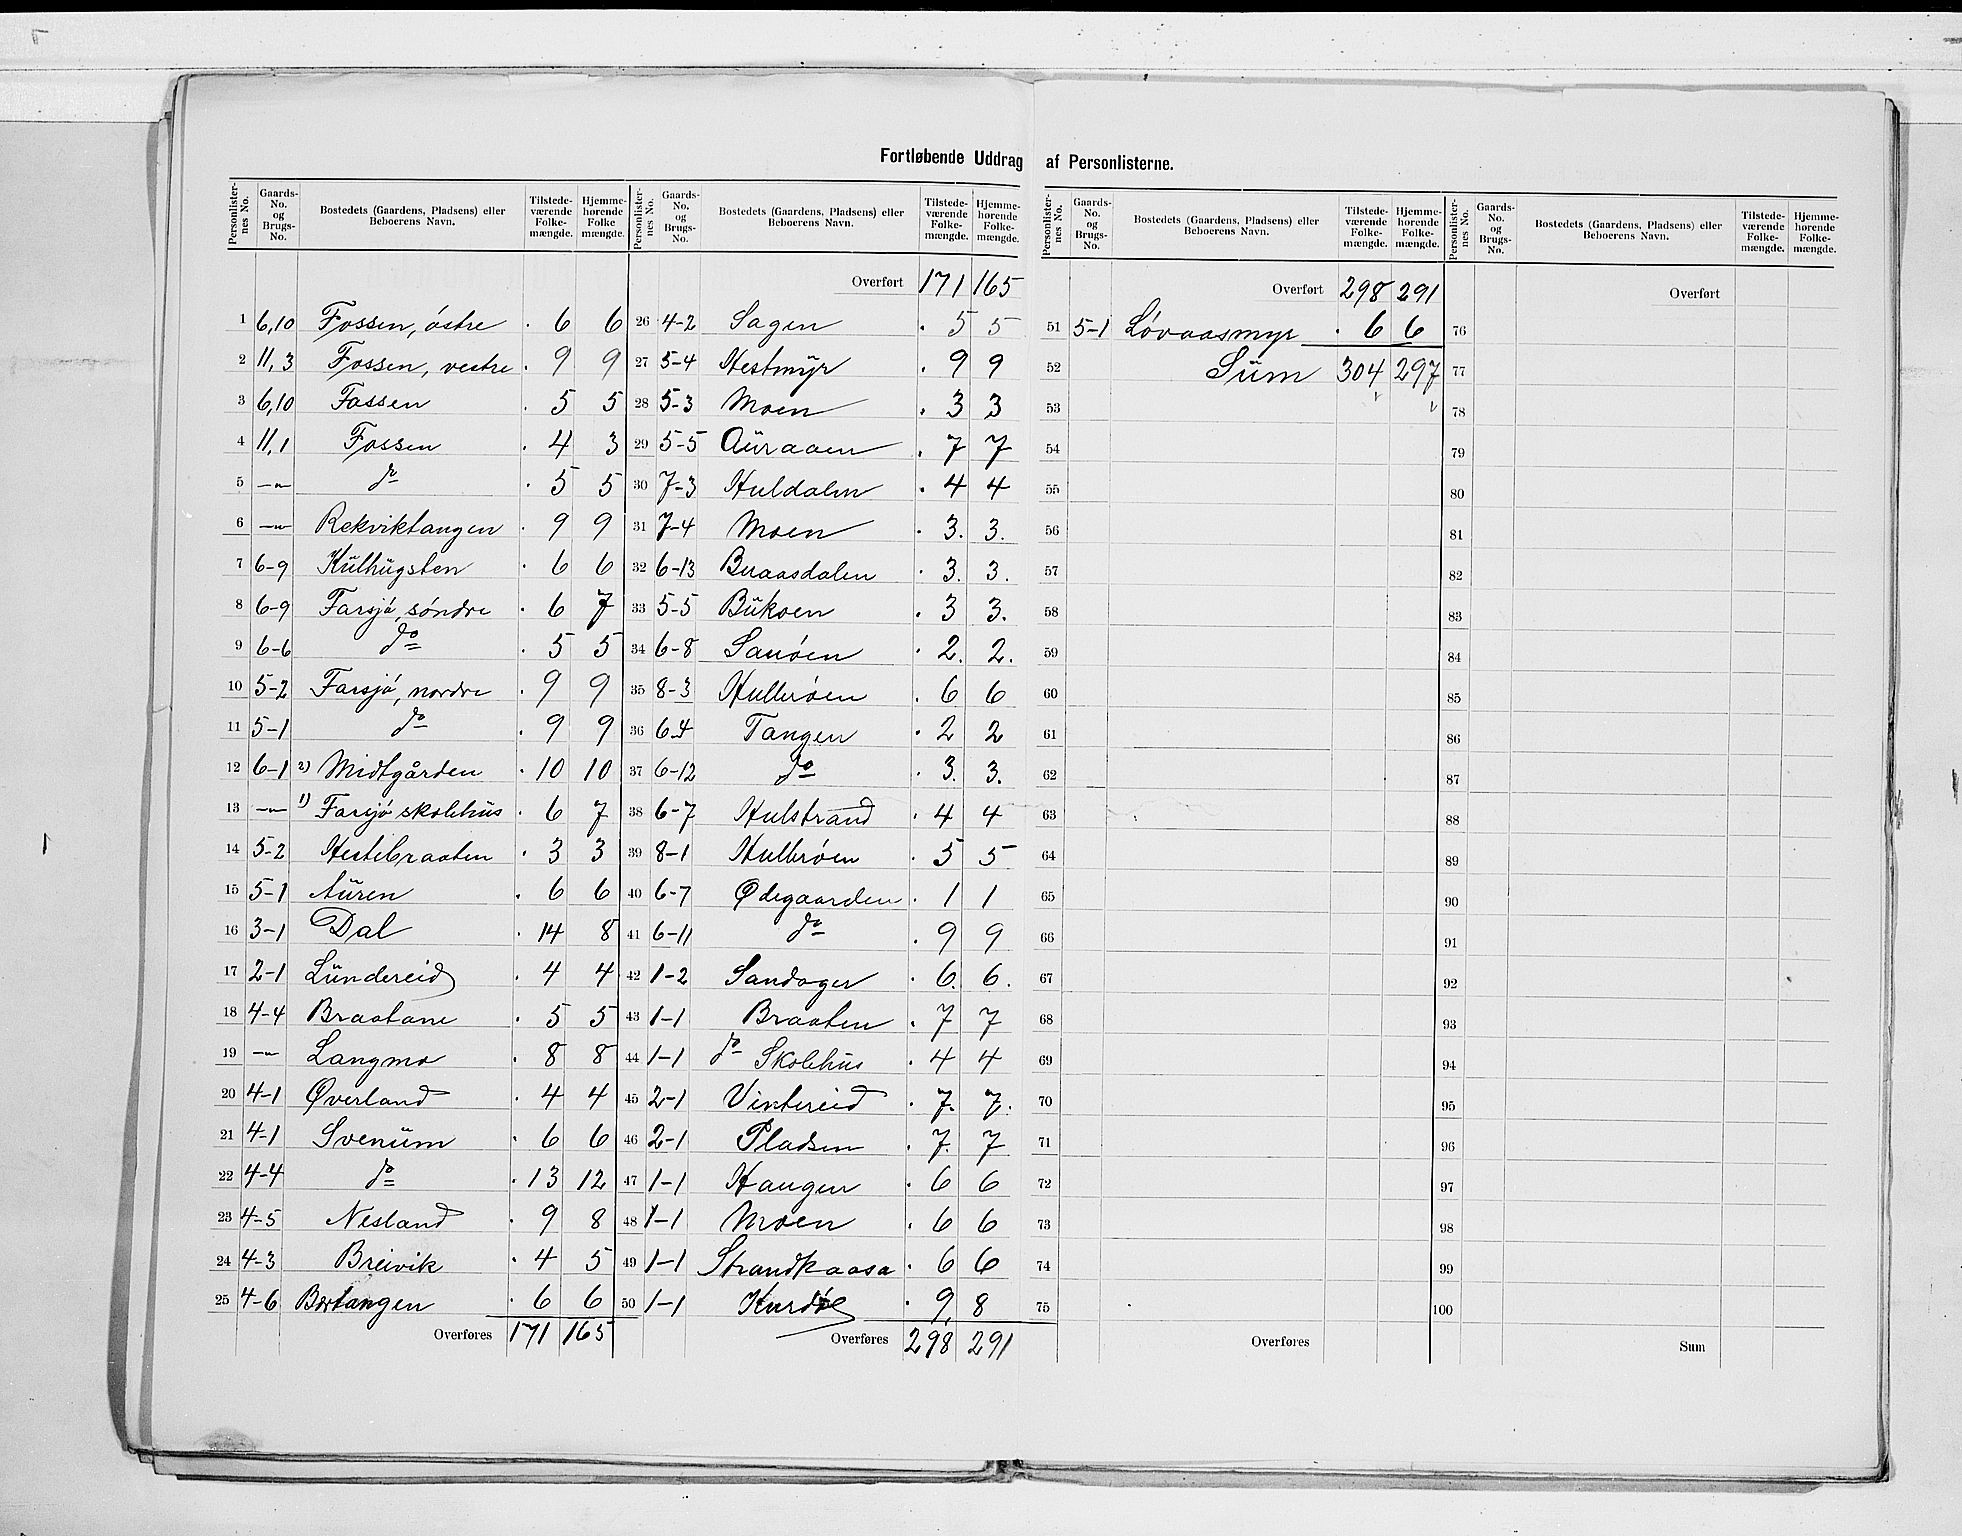 Fortløbende Uddrag af Personlisterne.
Personlister-nes No. Gaards-No. og Brugs-No. Bostedets (Gaardens, Pladsens) eller Beboerens Navn. Tilstede-værende Folke-mængde. Hjemme-hørende Folke mængde.
1 6,10 Fossen, östre 6 6
2 11,3 Fossen, vestre 9 9
3 6,10 Fossen 5 5
4 11,1 Fossen 4 3
5 —"— do 5 5
6 —"— Rekviktangen 9 9
7 6-9 Külhügsten 6 6
8 6-9 Farsjö, söndre 6 7
9 6-6 do 5 5
10 5-2 Farsjö, nordre 9 9
11 5-1 do 9 9
12 6-1 2) Midtgården 10 10
13 —"— 1) Farsjö skolehüs 6 7
14 5-2 Hestebraaten 3 3
15 5-1 Aüren 6 6
16 3-1 Dal 14 8
17 2-1 Lündereid 4 4
18 4-4 Braatane 5 5
19 —"— Langmo 8 8
20 4-1 Øverland 4 4
21 4-1 Svenüm 6 6
22 4-4 do 13 12
23 4-5 Nesland 9 8
24 4-3 Breivik 4 5
25 4-6 Bortangen 6 6
Overføres 171 165
Personlister-nes No. Gaards-No. og Brugs-No. Bostedets (Gaardens, Pladsens) eller Beboerens Navn. Tilstede-værende Folke-mængde. Hjemme-hørende Folke-mængde.
Overført 171 165
26 4-2 Sagen 5 5
27 5-4 Hestmÿr 9 9
28 5-3 Moen 3 3
29 5-5 Aüraaen 7 7
30 7-3 Huldalen 4 4
31 7-4 Moen 3. 3.
32 6-13 Buaasdalen 3. 3.
33 5-5 Bükoen 3 3.
34 6-8 Sanöen 2. 2.
35 8-3 Hulbröen 6 6
36 6-4 Tangen 2 2
37 6-12 do 3. 3.
38 6-7 Hulstrand 4 4
39 8-1 Hulbröen 5 5
40 6-7 Ødegaarden 1 1
41 6-11 do 9 9
42 1-2 Sandager 6. 6.
43 1-1 Braaten 7 7
44 1-1 do Skolehüs 4 4
45 2-1 Vintereid 7. 7.
46 2-1 Pladsen 7. 7
47 1-1 Haugen 6 6
48 1-1 Moen 6 6
49 1-1 Strandkaasa 6 6
50 1-1 9, 8
Overføres 298 291
Personlister-nes No. Gaards-No. og Brugs-No. Bostedets (Gaardens, Pladsens) eller Beboerens Navn. Tilstede-værende Folke-mængde. Hjemme-hørende Folke-mængde.
Overført 298 291
51 5-1 Lövaasmyr 6 6
52 Süm 304 297
53
54
55
56
57
58
59
60
61
62
63
64
65
66
67
68
69
70
71
72
73
74
75
Overføres
Personlister-nes No. Gaards-No. og Brugs-No. Bostedets (Gaardens, Pladsens) eller Beboerens Navn. Tilstede-værende Folke-mængde. Hjemme-hørende Folke-mængde.
Overført
76
77
78
79
80
81
82
83
84
85
86
87
88
89
90
91
92
93
94
95
96
97
98
99
100
Sum